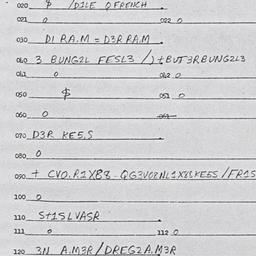 020 $ /D1LE Q FRENCH
021 0 022 0
030 D1 RA.M = D3R RA.M
040 3 BUNG2L FESL3 /) ± BUT 3R BUNG2L3
041 0 042 0
050 $ 051 0
060 0 061
070 D3R KE5.S
080 0
090 + CVO.R1XB8-QG3VO8NL1X8&KESS/FR1S
100 0
110 S+15LVASR
111 0 112 0
120 3N A.M3R/DREG2A.M3R